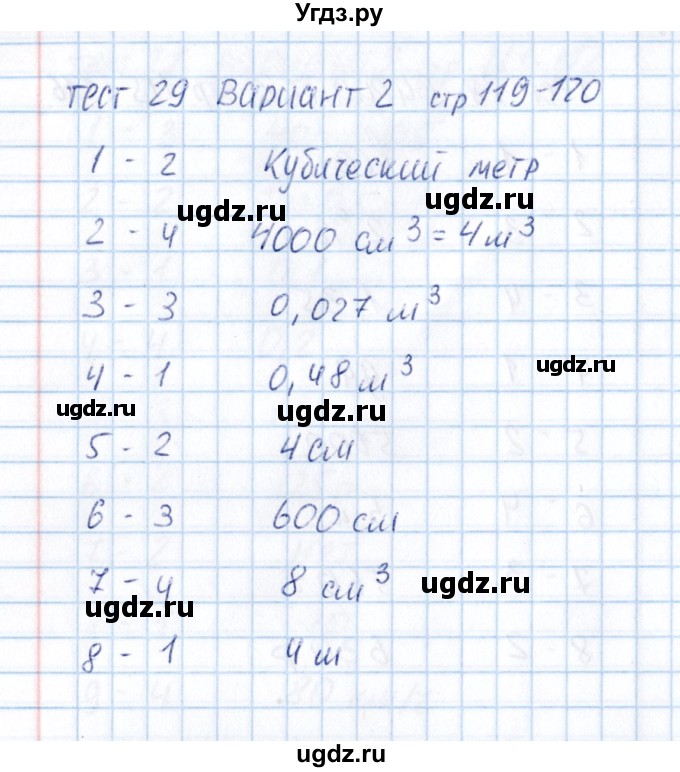 Угдз.ру
Тест 29 Вариант 2 стр 119-120
1 - 2 Кубический метр
ugdz.ru ugdz.ru
2 - 4 4000 см³ = 4 м³
3 - 3 0,027 м³
4 - 1 0,48 м³ ugdz.ru
ugdz.ru ugdz.ru
5 - 2 4 см
6 - 3 600 см
7 - 4 8 см³ ugdz.ru
ugdz.ru
8 - 1 4 ш
ugdz.ru